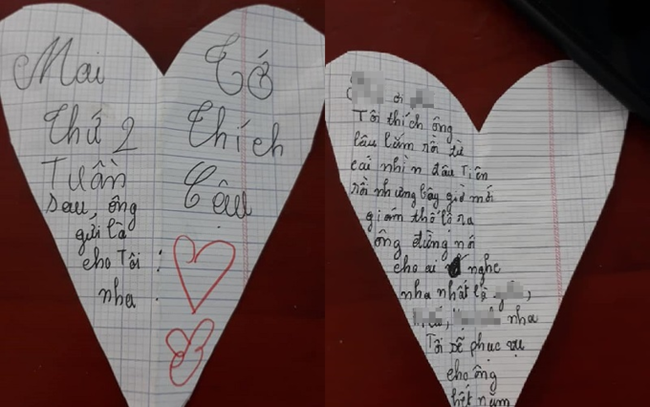 Mai
Thứ 2
Tuần
sau, ông
gửi là
cho Tôi :
nha .
Tớ
Thích
Cậu
ơi
Tôi thích ông
lâu lắm rồi từ
cái nhìn đâu Tiên
rồi nhưng bây giờ mới
giám thổ lộ ra
ông đừng nó
cho ai nghe
nha nhất là ,
nha
Tôi sẽ phục vụ
cho ông
hết năm